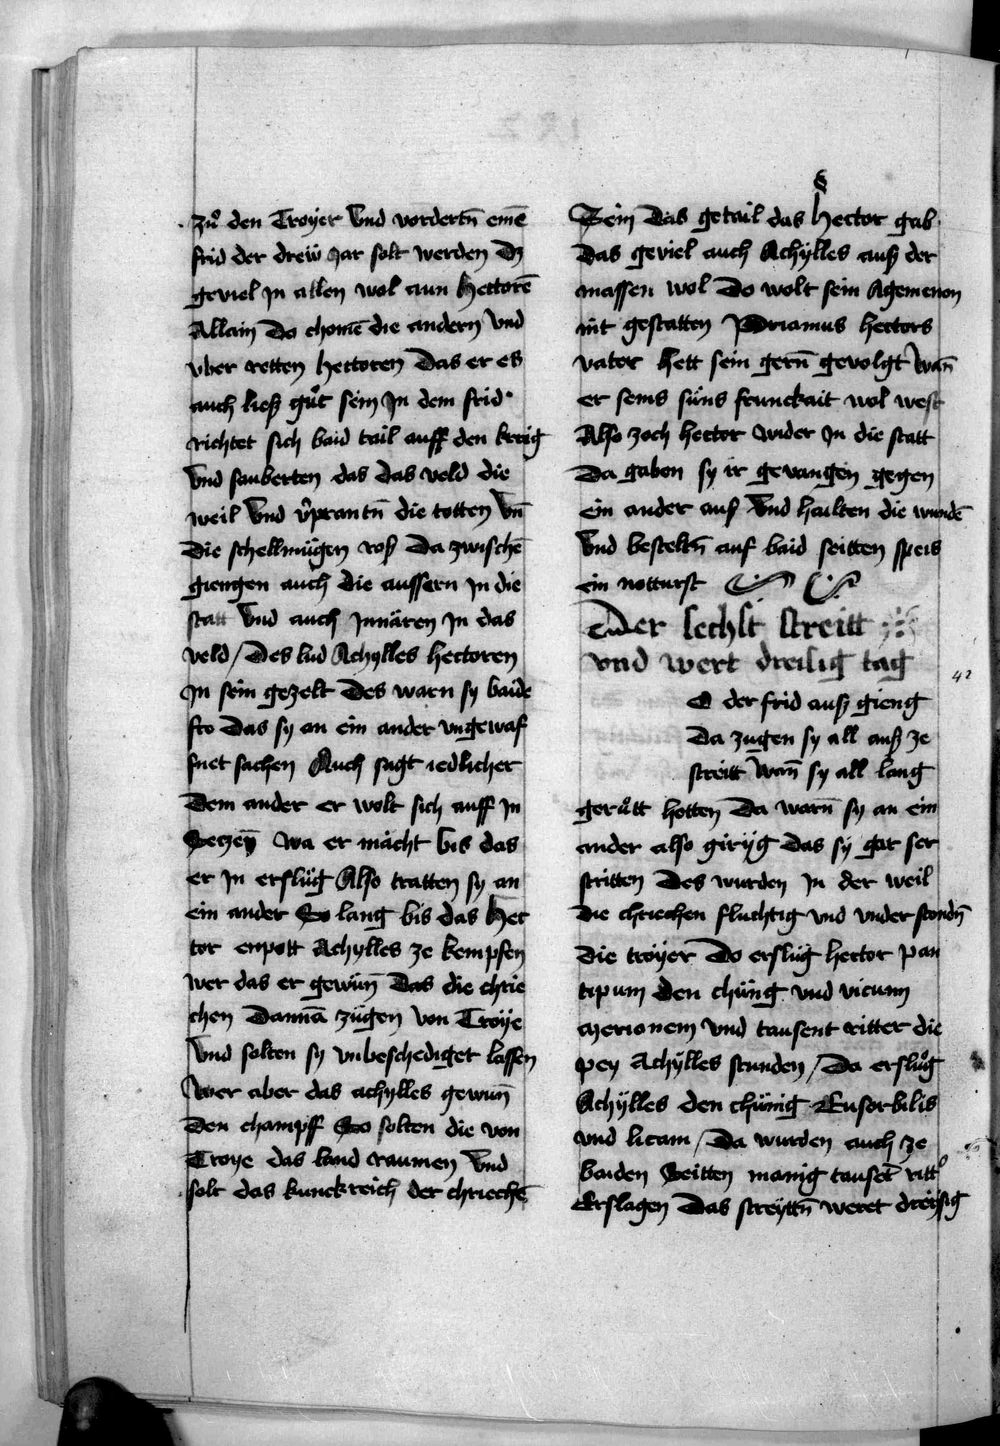 zů den Troyer Vnd vordertn̄ eınē
frid der drew Jar solt werden Dz
geviel jn allen wol aun Hettorē
Allain Do chomē die andern Vnd
vber retten hettoren Das er es
auch ließ gůt sein jn dem frid
richtet sich baid tail auff den kreig
Vnd sauberten das das veld die
weil Vnd v̂prantn̄ die totten Vn̄
Die schellmügen roß Da zwischē
giengen auch die aussern jn die
statt Vnd auch jnnären jn das
veld / Des lud Achylles hectoren
jn sein gezelt Des warn sy baide
fro Das sy an ein ander vngewaf
fnet sachen Auch sagt iedlicher
Dem ander er wolt sich auff jn
Seczen̄ wa er mächt bis das
er jn erslüg Also tratten sy an
ein ander So lang bis das Hec
tor enpott Achylles ze kempfen
wer das er gewün̄ Das die chrie
chen Dannā zügen von Troÿe
Vnd solten sy vnbeschediget lassen
Wer aber das achylles gewun̄
Den champff So solten die von
Troye das land raumen Vnd
solt das kunckreich der chriechē
Sein Das getail das Hector gab
Das geviel auch Achÿlles auß der
massen wol Do wolt sein Agemenon
nit gestatten Priamus hectors
vater hett sein gern̄ gevolgt wan̄
er seins süns frunckait wol west
Also zoch hector wider jn die statt
Da gabon sy ir gevangen gegen
ein ander auß Vnd hailten die wundē
Vnd besteltn̄ auf baid seitten speis
ein notturft
Der sechst streitt
vnd wert dreisig tag
42
O der frid auß gieng
Da zugen sy all auß ze
streitt wan̄ sy all lang
gerůtt hetten Da warn̄ sy an ein
ander also giryg das sy gar ser
stritten Des wurden jn der weil
Die chriechen fluchtig vnd vnder stondn̄
die troÿer Do erslüg hector pan
tipum den chüng vnd vicum
merionem vnd tausent ritter die
pey Achÿlles stunden / Da erslůg
Achÿlles den chünig Eusorbilis
vnd licam / Da wurden auch ze
baiden Seitten manig tausēt ritt̾
Erslagen Das streyttn̄ weret dreysig